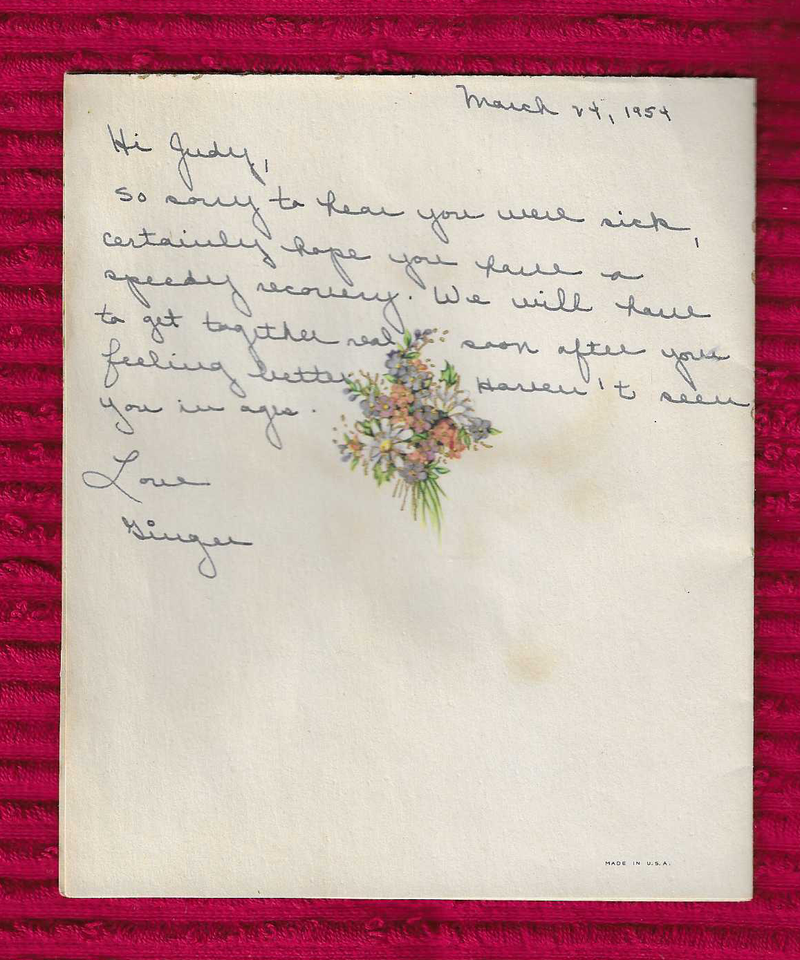 March 24, 1954
Hi Judy,
So sorry to hear you were sick,
certainly hope you have a
speedy recovery. We will have
to get together real soon after your
feeling better Haven't seen
you in ages.
Love
Ginger
MADE IN U.S.A.